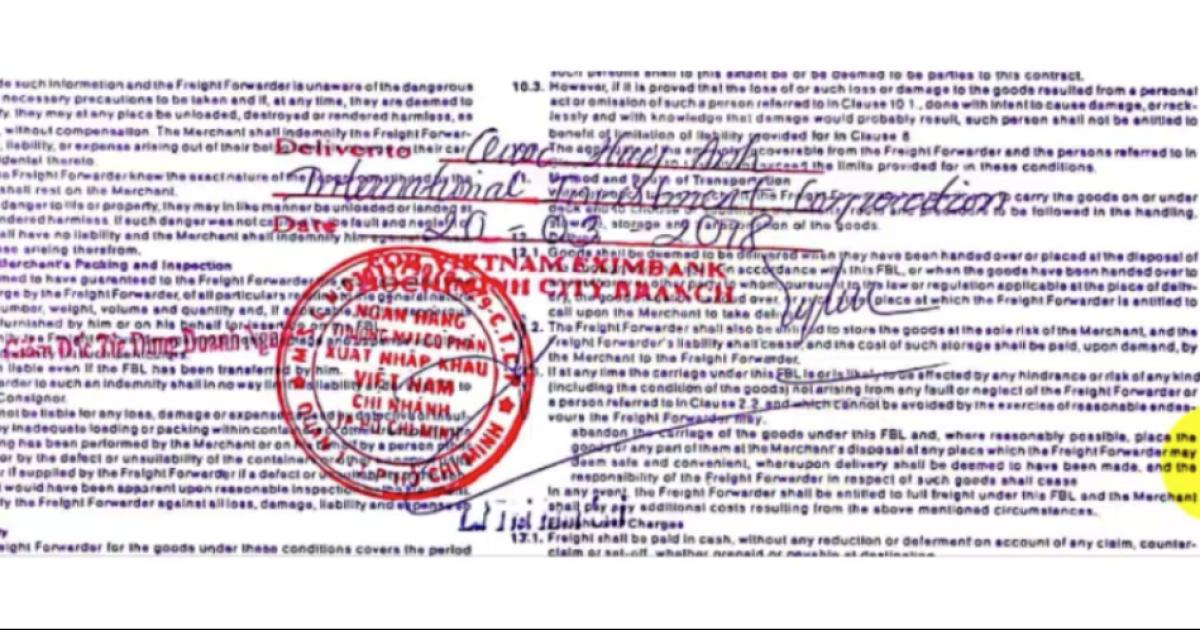 e such information and the Freight Forwarder is unaware of the dangerous
necessary precautions to be taken and if, at any time, they are deemed to
y. they may at any place be unloaded, destroyed or rendered harmless, as
, without compensation. The Merchant shall indemnify the Freight Forwar-
, liability, or expense arising out of their
dental thereto.
e Freight Forwarder know the exact nature of
shall rest on the Merchant.
danger to life or property, they may in like manner be unloaded or landed at
ndered harmless. If such danger was not
all have no liability and the Merchant shall indemnify him
se arising therefrom.
Merchant's Packing and Inspection
med to have guaranteed to the Freight Forwarder
rge by the Freight Forwarder, of all particulars
umber, weight, volume and quantity and, if
furnished by him or on his behalf for
liable even if the FBL has been transferred by him.
arder to such an indemnity shall in no way
Consignor.
not be liable for any loss, damage or expense
by inadequate loading or packing within
ng has been performed by the Merchant or on by a person
or by the defect or unsuitability of the container
r if supplied by the Freight Forwarder if a defect or
would have been apparent upon reasonable
y the Freight Forwarder against all loss, damage, liability and expense
eight Forwarder for the goods under these conditions covers the period
such persons shall to this extent be or be deemed to be parties to this contract.
10.3. However, if it is proved that the loss of or such loss or damage to the goods resulted from a personal
act or omission of such a person referred to in Clause 10.1., done with intent to cause damage, or reck-
lessly and with knowledge that damage would probably result, such person shall not be entitled to
benefit of limitation of liability provided for in Clause 8.
recoverable from the Freight Forwarder and the persons referred to in
exceed the limits provided for in these conditions.
Method and Route of Transportation
carry the goods on or under
to be followed in the handling,
storage and of the goods.
12.1. Goods shall be deemed to be delivered when they have been handed over or placed at the disposal of
in accordance with this FBL, or when the goods have been handed over to
whom pursuant to law or regulation applicable at the place of deliv-
over, place at which the Freight Forwarder is entitled to
call upon the Merchant to take
2. The Freight Forwarder shall also be entitled to store the goods at the sole risk of the Merchant, and the
Freight Forwarder's liability shall cease, and the cost of such storage shall be paid, upon demand, by
the Merchant to the Freight Forwarder.
If at any time the carriage under this FBL is or is likely to be affected by any hindrance or risk of any kind
(including the condition of the goods) not arising from any fault or neglect of the Freight Forwarder or
a person referred to in Clause 2.2. and which cannot be avoided by the exercise of reasonable endea-
vours the Freight Forwarder may:
abandon the carriage of the goods under this FBL and, where reasonably possible, place the
goods or any part of them at the Merchant's disposal at any place which the Freight Forwarder may
deem safe and convenient, whereupon delivery shall be deemed to have been made, and the
responsibility of the Freight Forwarder in respect of such goods shall cease
In any event, the Freight Forwarder shall be entitled to full freight under this FBL and the Merchant
shall pay any additional costs resulting from the above mentioned circumstances.
Charges
13.1. Freight shall be paid in cash, without any reduction or deferment on account of any claim, counter-
claim or set-off, whether prepaid or payable at destination.
Deliver to Huy Anh
International Investment Corporation
Date 20 - 03 - 2018
FOR VIETNAM EXIMBANK
HOCHIMINH CITY BRANCH
NGÂN HÀNG
THƯƠNG MẠI CỔ PHẦN
XUẤT NHẬP KHẨU
VIỆT NAM
CHI NHÁNH
TP HỒ CHÍ MINH
QUẬN 1 T.P HỒ CHÍ MINH